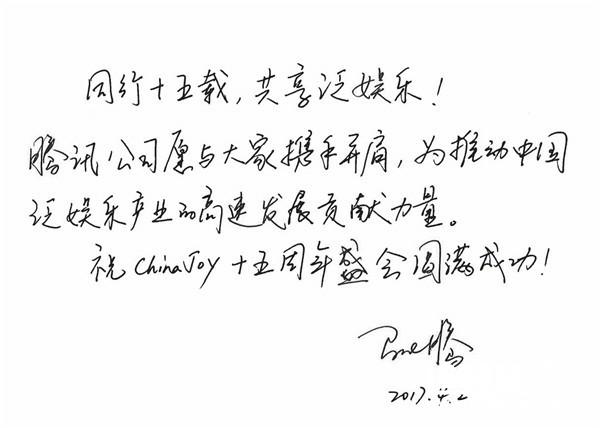 同行十五载，共享泛娱乐！
腾讯公司愿与大家携手并肩，为推动中国
泛娱乐产业的高速发展贡献力量。
祝 ChinaJoy 十五周年盛会圆满成功！
马化腾
2017.4.2